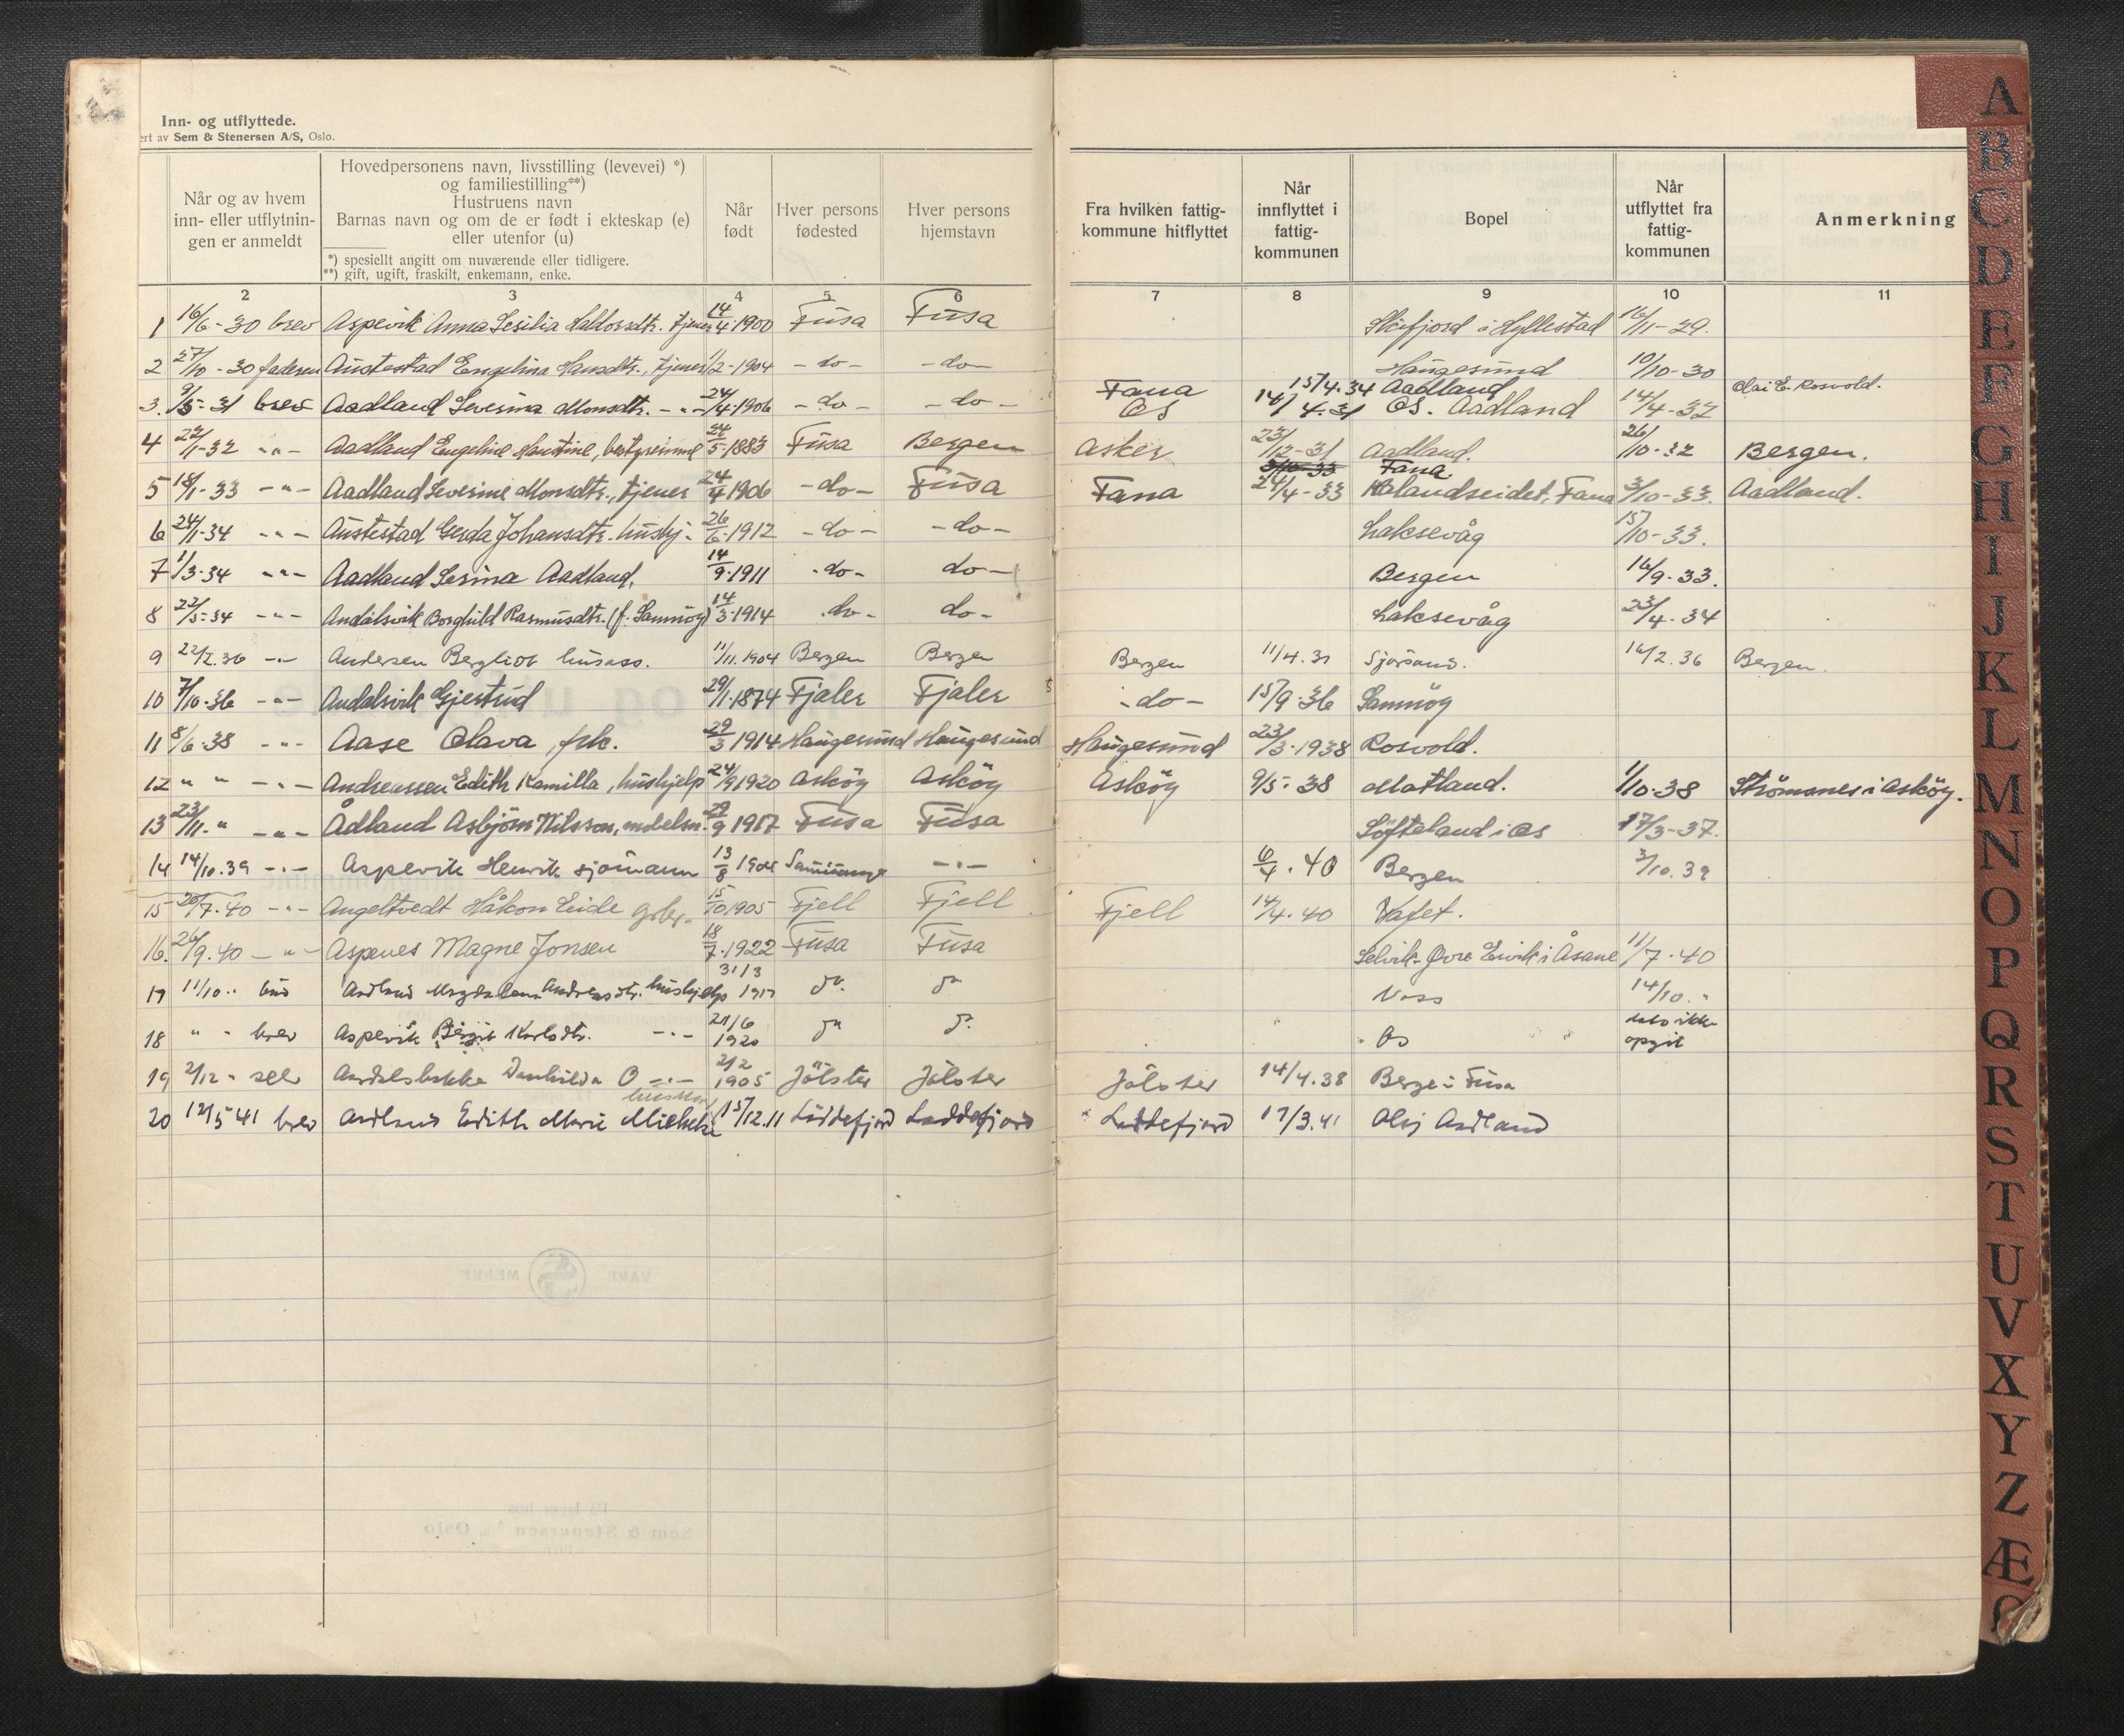 Inn- og utflyttede.
ert av Sem & Stenersen A/S, Oslo.
Når og av hvem inn- eller utflytnin- gen er anmeldt
Hovedpersonens navn, livsstilling (levevei) *)
og familiestilling**)
Hustruens navn
Barnas navn og om de er født i ekteskap (e)
eller utenfor (u)
*) spesiellt angitt om nuværende eller tidligere.
**) gift, ugift, fraskilt, enkemann, enke.
Når født
Hver persons fødested
Hver persons hjemstavn
Fra hvilken fattig- kommune hitflyttet
Når innflyttet i fattig- kommunen
Bopel
Når utflyttet fra fattig- kommunen
Anmerkning
2 3 4 5 6 7 8 9 10 11
1 16/6-30 brev Aspevik Anna Sesilia tjener 14/4·1900 Fusa Fusa i Hyllestad 16/11-29.
2 27/10-30 faderen Austestad Engelina Hansdtr., tjener 1/2-1904 -do- -do- Haugesund 10/10-30
Fana 15/4.34 Aadland
3. 9/5-31 brev Aadland Severina Monsdtr. -"- 24/4·1906 -do- -do- Os 14/4.31 Os. Aadland 14/4-32 E. Rosvold.
4 22/1-32 -"- Aadland Engeline 24/5·1883 Fusa Bergen Asker 23/12-31 Aadland. 26/10-32 Bergen.
Fana.
5 18/1-33 -"- Aadland Severine Monsdtr., tjener 24/4 1906 -do- Fusa Fana 24/4-33 Kalandseidet, Fana 3/10-33. Aadland.
6 24/1-34 -"- Austestad Gerda Johansdtr. hushj. 26/6·1912 -do- -do- Laksevåg 15/10-33.
7 1/3-34 -"- Aadland Sesina Aadland. 14/9·1911 -do- do- Bergen 16/9-33.
8 22/5-34 -"- Andalsvik Borghild Rasmusdtr. (f. Samnøy) 14/3·1914 do- do- Laksevåg 23/4.34
9 22/2.36 -"- Andersen Bergliot husass. 11/11.1904 Bergen Bergen Bergen 11/4.31 16/2.36 Bergen.
10 7/10-36 -"- Andalsvik Gjertrud 29/1·1874 Fjaler Fjaler -do- 15/9-36 Samnøy
11 8/6-38 -"- Aase Olava, frk. 29/3 1914 Haugesund Haugesund Haugesund 23/3·1938 Rosvold.
12 " " -"- Andreassen Edith Kamilla, hushjelp 24/9 1920 Askøy Askøy Askøy 9/5-38 Matland. 1/10-38 Strømsnes i Askøy.
13 23/11." -"- Ådland Asbjørn Nilsson, møbelsn. 29/9 1917 Fusa Fusa Søfteland i Os 17/3-37.
14 14/10.39 -"- Aspevik Henrik sjømann 13/8 -"- 6/4.40 Bergen 3/10.39
15 20/7.40 -"- Angeltvedt Håkon Eide 15/10 1905 Fjell Fjell Fjell 14/4.40
16. 26/9.40 -"- Aspenes Magne Jonsen 18/7·1922 Fusa Fusa Selvik-Øvre Ervik i Åsane 11/7.40
17 11/10." bud Aadland Magdalena Andreasdtr. hushjelp 31/3 do. do Voss 14/10."
18 " " brev Aspevik Birgit Karlsdtr. -"- 21/6 1920 do do Os dato ikke opgit
19 2/12 " selv O -"- 2/2 1905 Jølster Jølster Jølster 14/4.38 Berge i Fusa
20 12/5 41 brev Aadland Edith Marie 15/12.11 Loddefjord Loddefjord Loddefjord 17/3.41 Aadland
A
B
C
D
E
F
G
H
I
J
K
L
M
N
O
P
Q
R
S
T
U
V
X
Y
Z
Æ